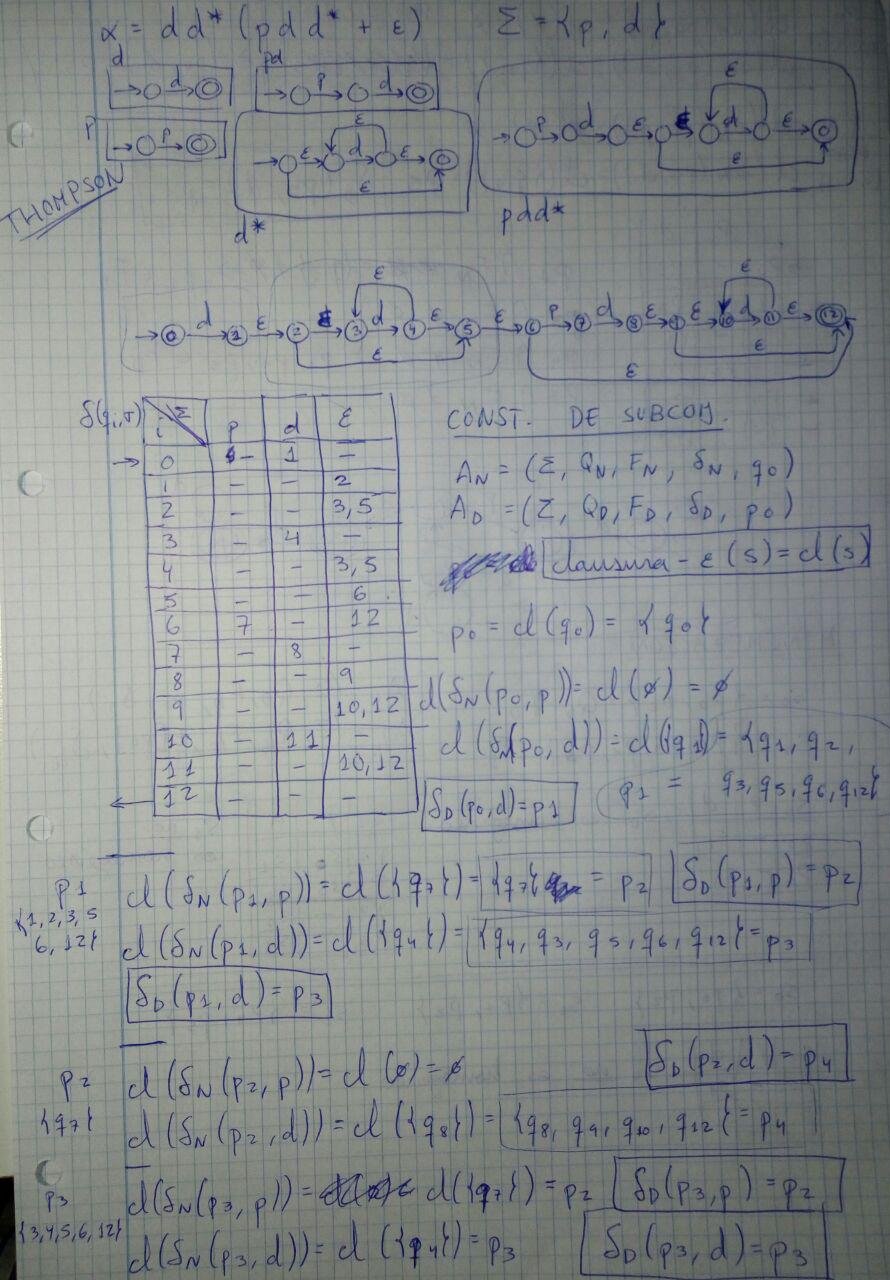 α = d d* (p d d* + ε) Σ = {p, d}
d
d
pd
p d
ε
p d ε ε d ε
ε
p
p
ε
ε d ε
ε
THOMPSON
d*
pdd*
ε ε
d ε ε d ε ε p d ε ε d ε
0 1 2 3 4 5 6 7 8 9 10 11 12
ε ε
ε
δ(qi,σ) i Σ p d ε
→ 0 - 1 -
1 - - 2
2 - - 3,5
3 - 4 -
4 - - 3,5
5 - - 6
6 7 - 12
7 - 8 -
8 - - 9
9 - - 10,12
10 - 11 -
11 - - 10,12
← 12 - - -
CONST. DE SUBCONJ.
AN = (Σ, QN, FN, δN, q0)
AD = (Σ, QD, FD, δD, p0)
clausura - ε (s) = cl(s)
p0 = cl (q0) = {q0}
cl(δN(p0, p)) = cl(ø) = ø
cl (δN(p0, d)) = cl({q1}) = {q1, q2,
p1 = q3, q5, q6, q12}
δD(p0,d)=p1
p1
{1,2,3,5
6,12}
cl (δN(p1, p)) = cl({q7}) = {q7} = p2 δD(p1, p) = p2
cl (δN(p1, d)) = cl ({q4}) = {q4, q3, q5, q6, q12} = p3
δD(p1, d) = p3
p2
{q7}
cl (δN(p2, p)) = cl (ø) = ø δD(p2, d) = p4
cl (δN(p2, d)) = cl ({q8}) = {q8, q9, q10, q12} = p4
p3
{3,4,5,6,12}
cl(δN(p3, p)) = cl({q7}) = p2 δD(p3, p) = p2
cl(δN(p3, d)) = cl ({q4}) = p3 δD(p3, d) = p3